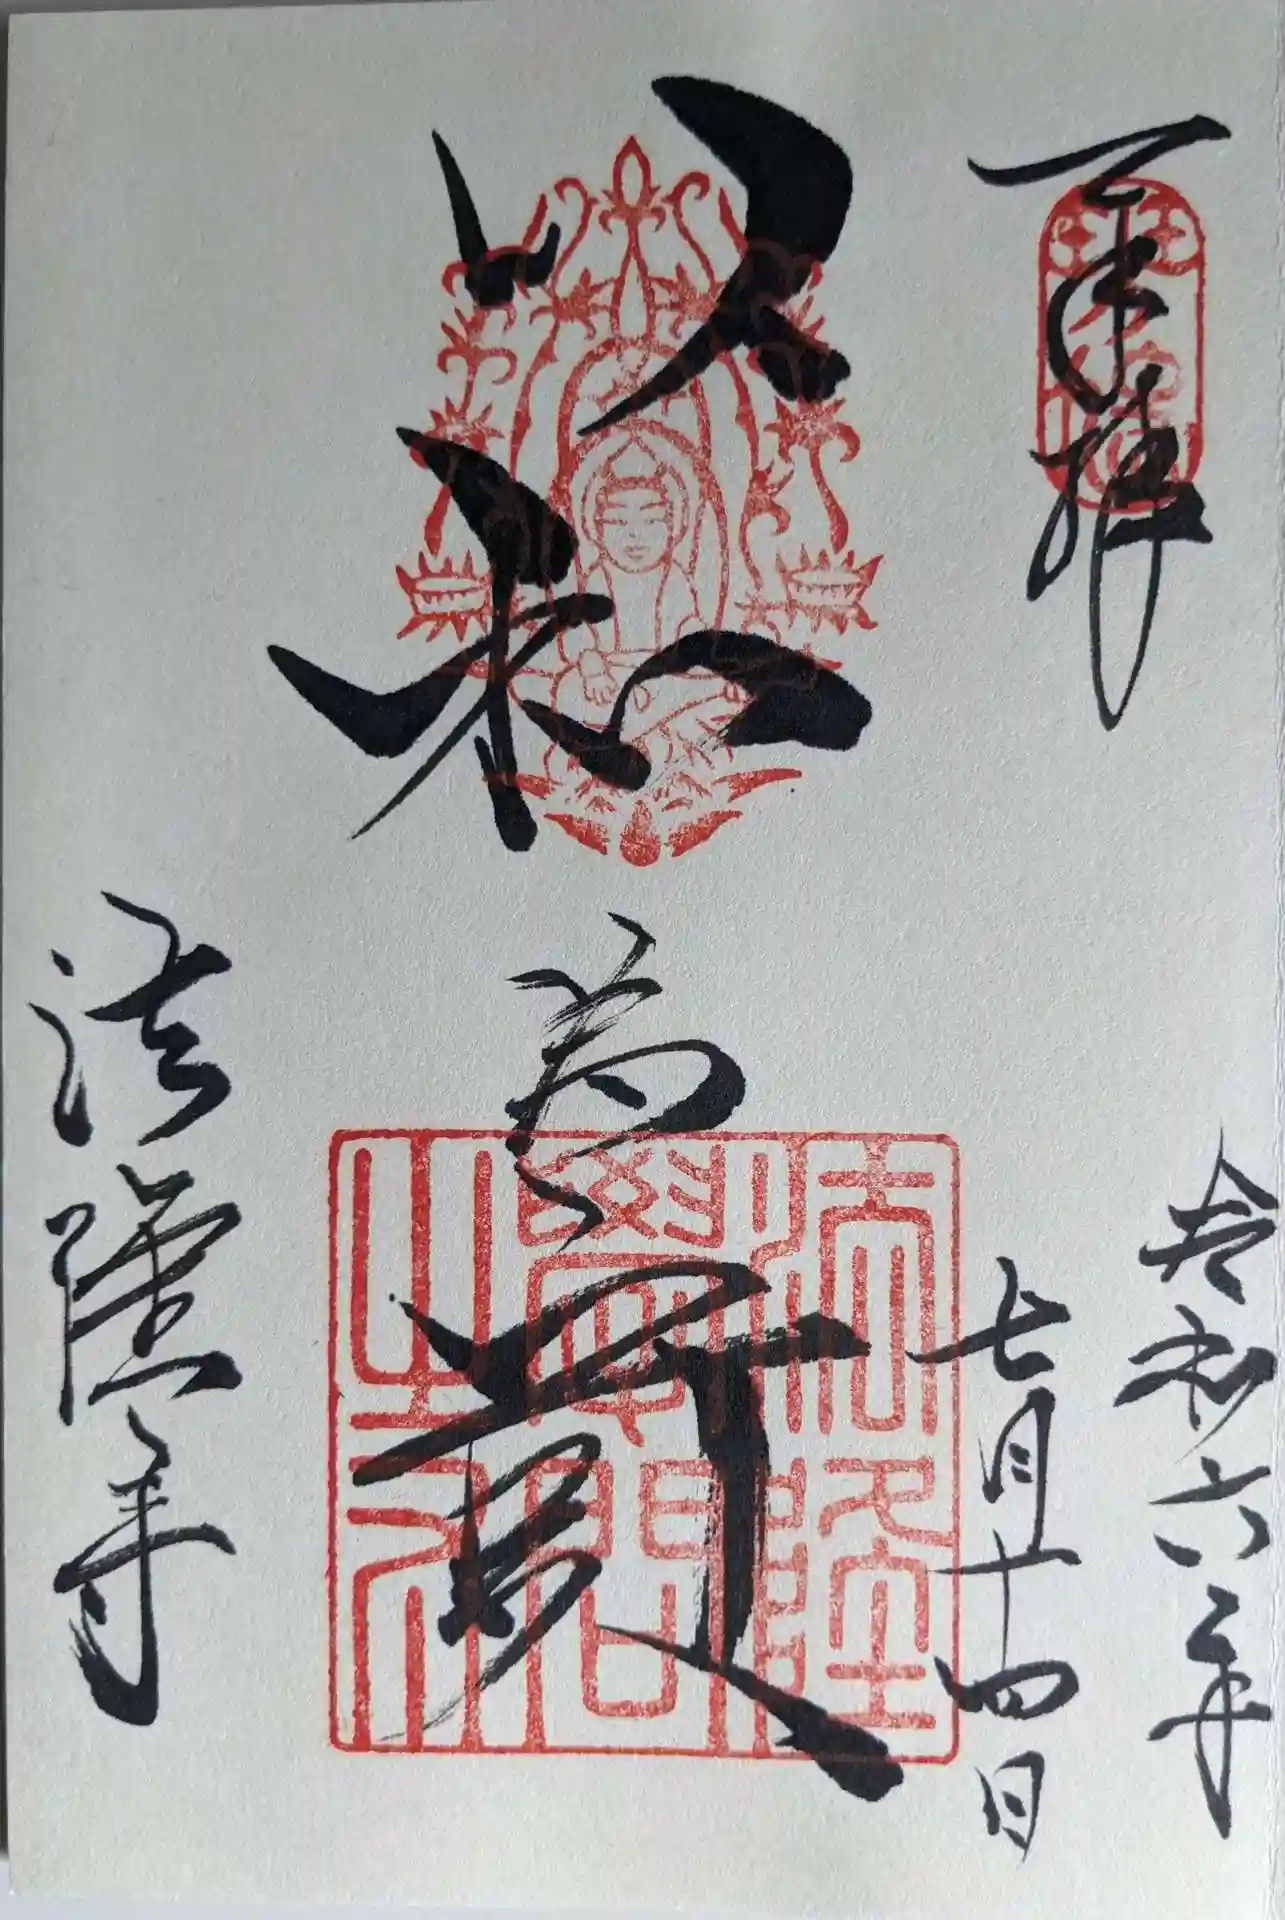 奉拝
令和六年
七月十四日
以和為貴
法隆寺